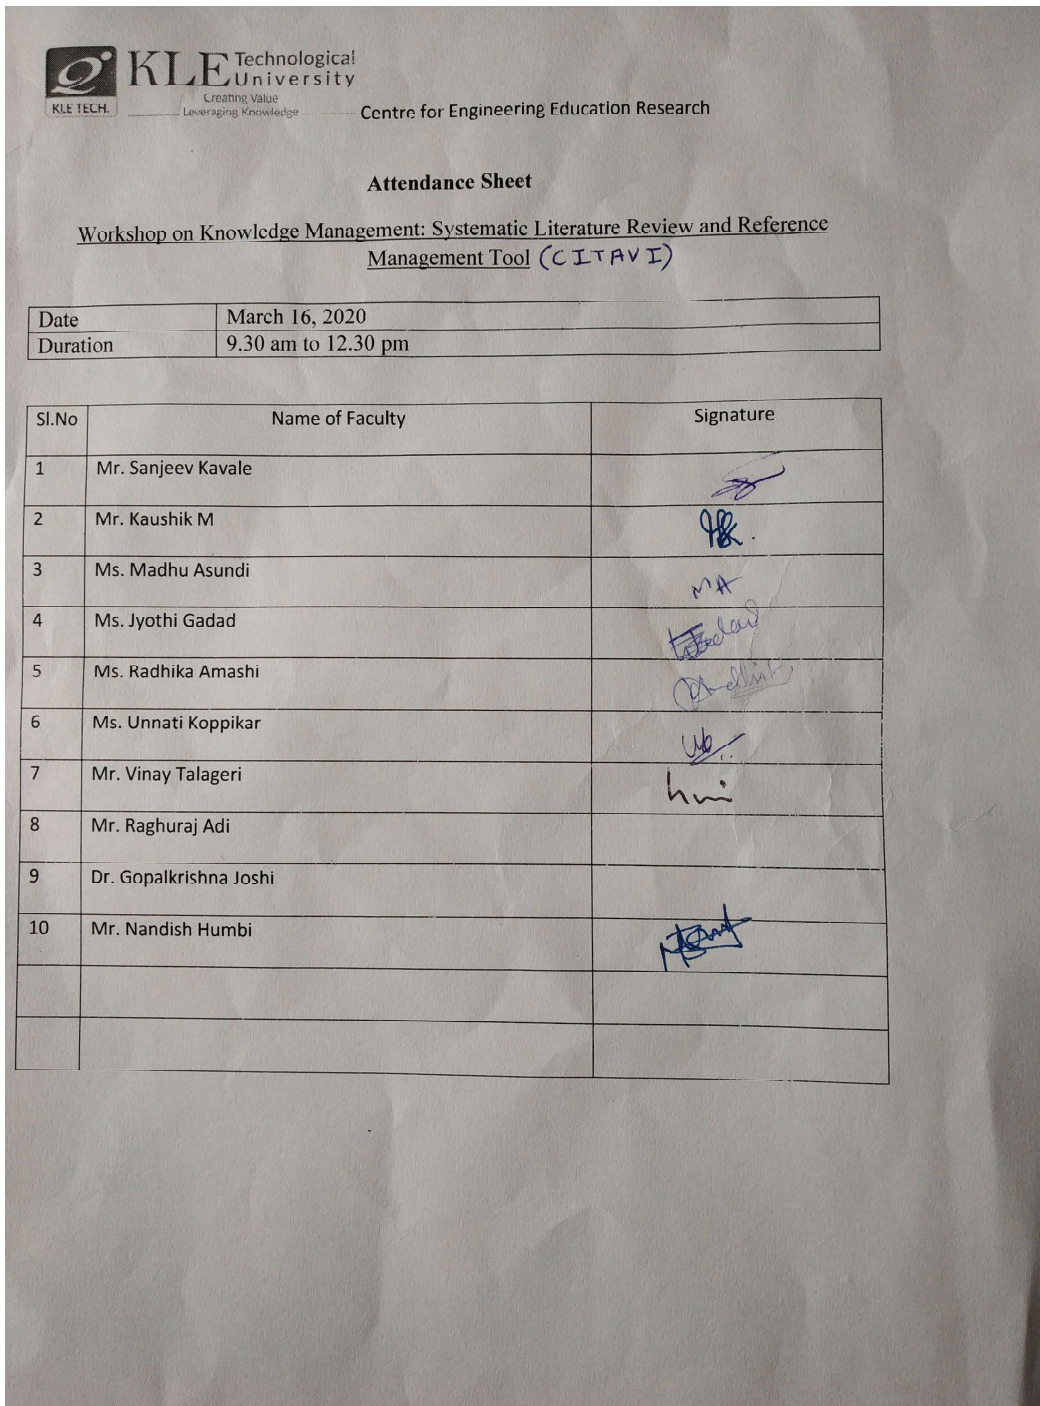 KLE Technological University
Creating Value
Leveraging Knowledge
KLE TECH.
Centre for Engineering Education Research
Attendance Sheet
Workshop on Knowledge Management: Systematic Literature Review and Reference
Management Tool (CITAVI)
Date March 16, 2020
Duration 9.30 am to 12.30 pm
Sl.No Name of Faculty Signature
1 Mr. Sanjeev Kavale
2 Mr. Kaushik M
3 Ms. Madhu Asundi MA
4 Ms. Jyothi Gadad
5 Ms. Radhika Amashi
6 Ms. Unnati Koppikar
7 Mr. Vinay Talageri
8 Mr. Raghuraj Adi
9 Dr. Gopalkrishna Joshi
10 Mr. Nandish Humbi